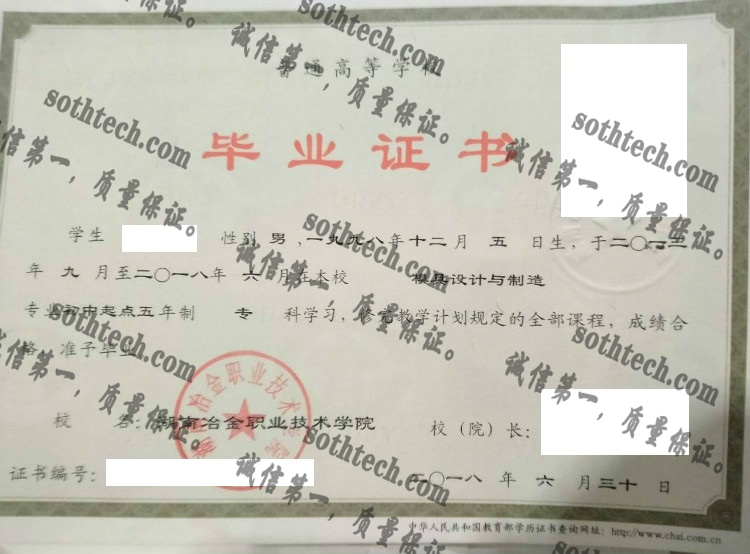 普通高等学校
毕业证书
学生 性别 男,一九九八年十二月 五 日生,于二〇一三
年 九 月至二〇一八年 六 月在本校 模具设计与制造
专业初中起点五年制 专 科学习,修完教学计划规定的全部课程,成绩合
格,准予毕业。
校 名:湖南冶金职业技术学院 校(院)长:
证书编号: 二〇一八 年 六 月 三十 日
中华人民共和国教育部学历证书查询网址:http://www.chsi.com.cn
湖南冶金职业技术学院
sothtech.com
诚信第一,质量保证。
sothtech.com
诚信第一,质量保证。
sothtech.com
诚信第一,质量保证。
sothtech.com
诚信第一,质量保证。
sothtech.com
诚信第一,质量保证。
sothtech.com
诚信第一,质量保证。
sothtech.com
诚信第一,质量保证。
sothtech.com
诚信第一,质量保证。